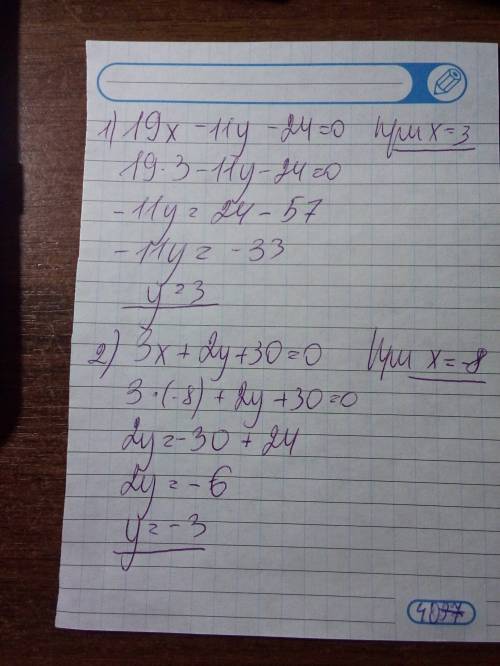 1) 19x - 11y - 24 = 0 При x = 3
19 · 3 - 11y - 24 = 0
-11y = 24 - 57
-11y = -33
y = 3
2) 3x + 2y + 30 = 0 При x = -8
3 · (-8) + 2y + 30 = 0
2y = -30 + 24
2y = -6
y = -3